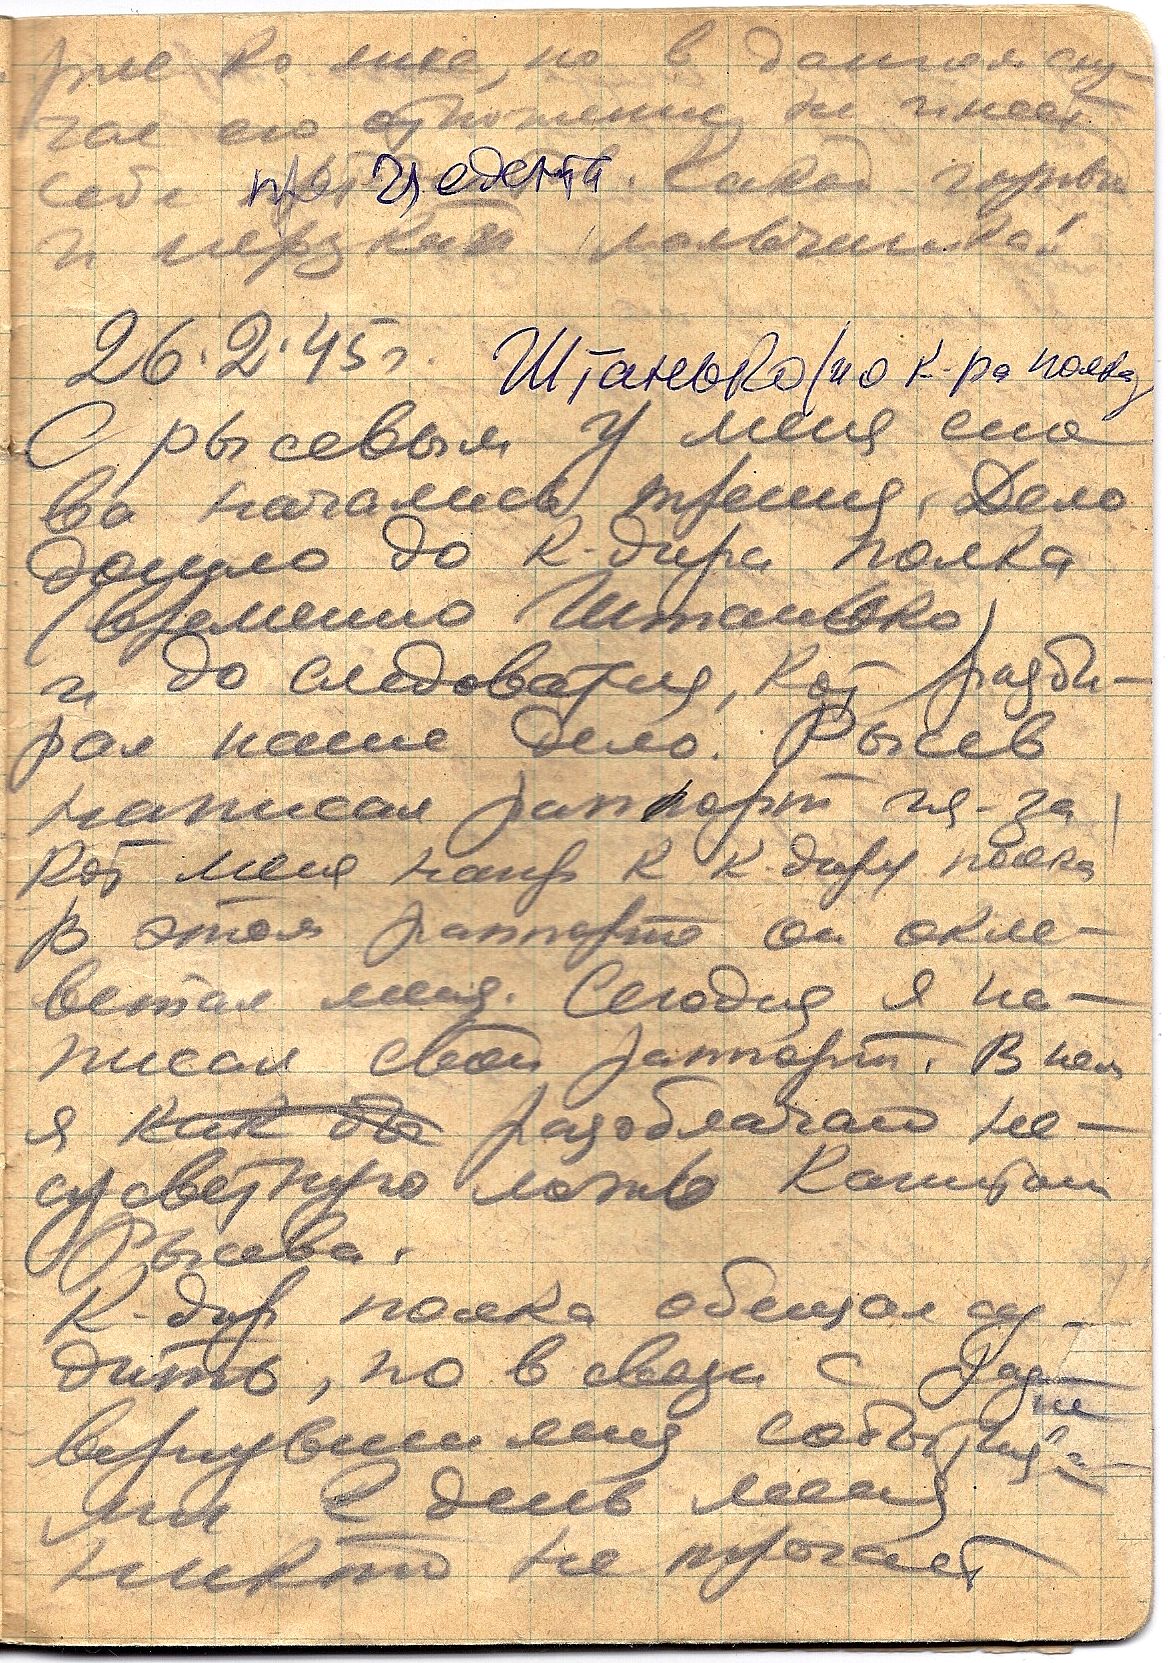 но в данном слу-
чае его отношение не имеет
себе прецедента. Какой
и мерзкий мальчишка!
26.2.45 г. Штанько (ио к-ра полка)
С Рысевым у меня сно
ва начались трения. Дело
дошло до к-дира полка
(временно Штанько)
и до следователя, кот разби-
рал наше дело. Рысев
написал раппорт из-за
кот меня напр к к-диру полка
В этом раппорте он окле-
ветал меня. Сегодня я на-
писал свой раппорт. В нем
я как бы разоблачаю не-
сусветную ложь Капитан
Рысева.
К-дир полка обещал су-
дить, но в связи с раз
вернувшимися событиям
ми 2 день меня
никто не трогает